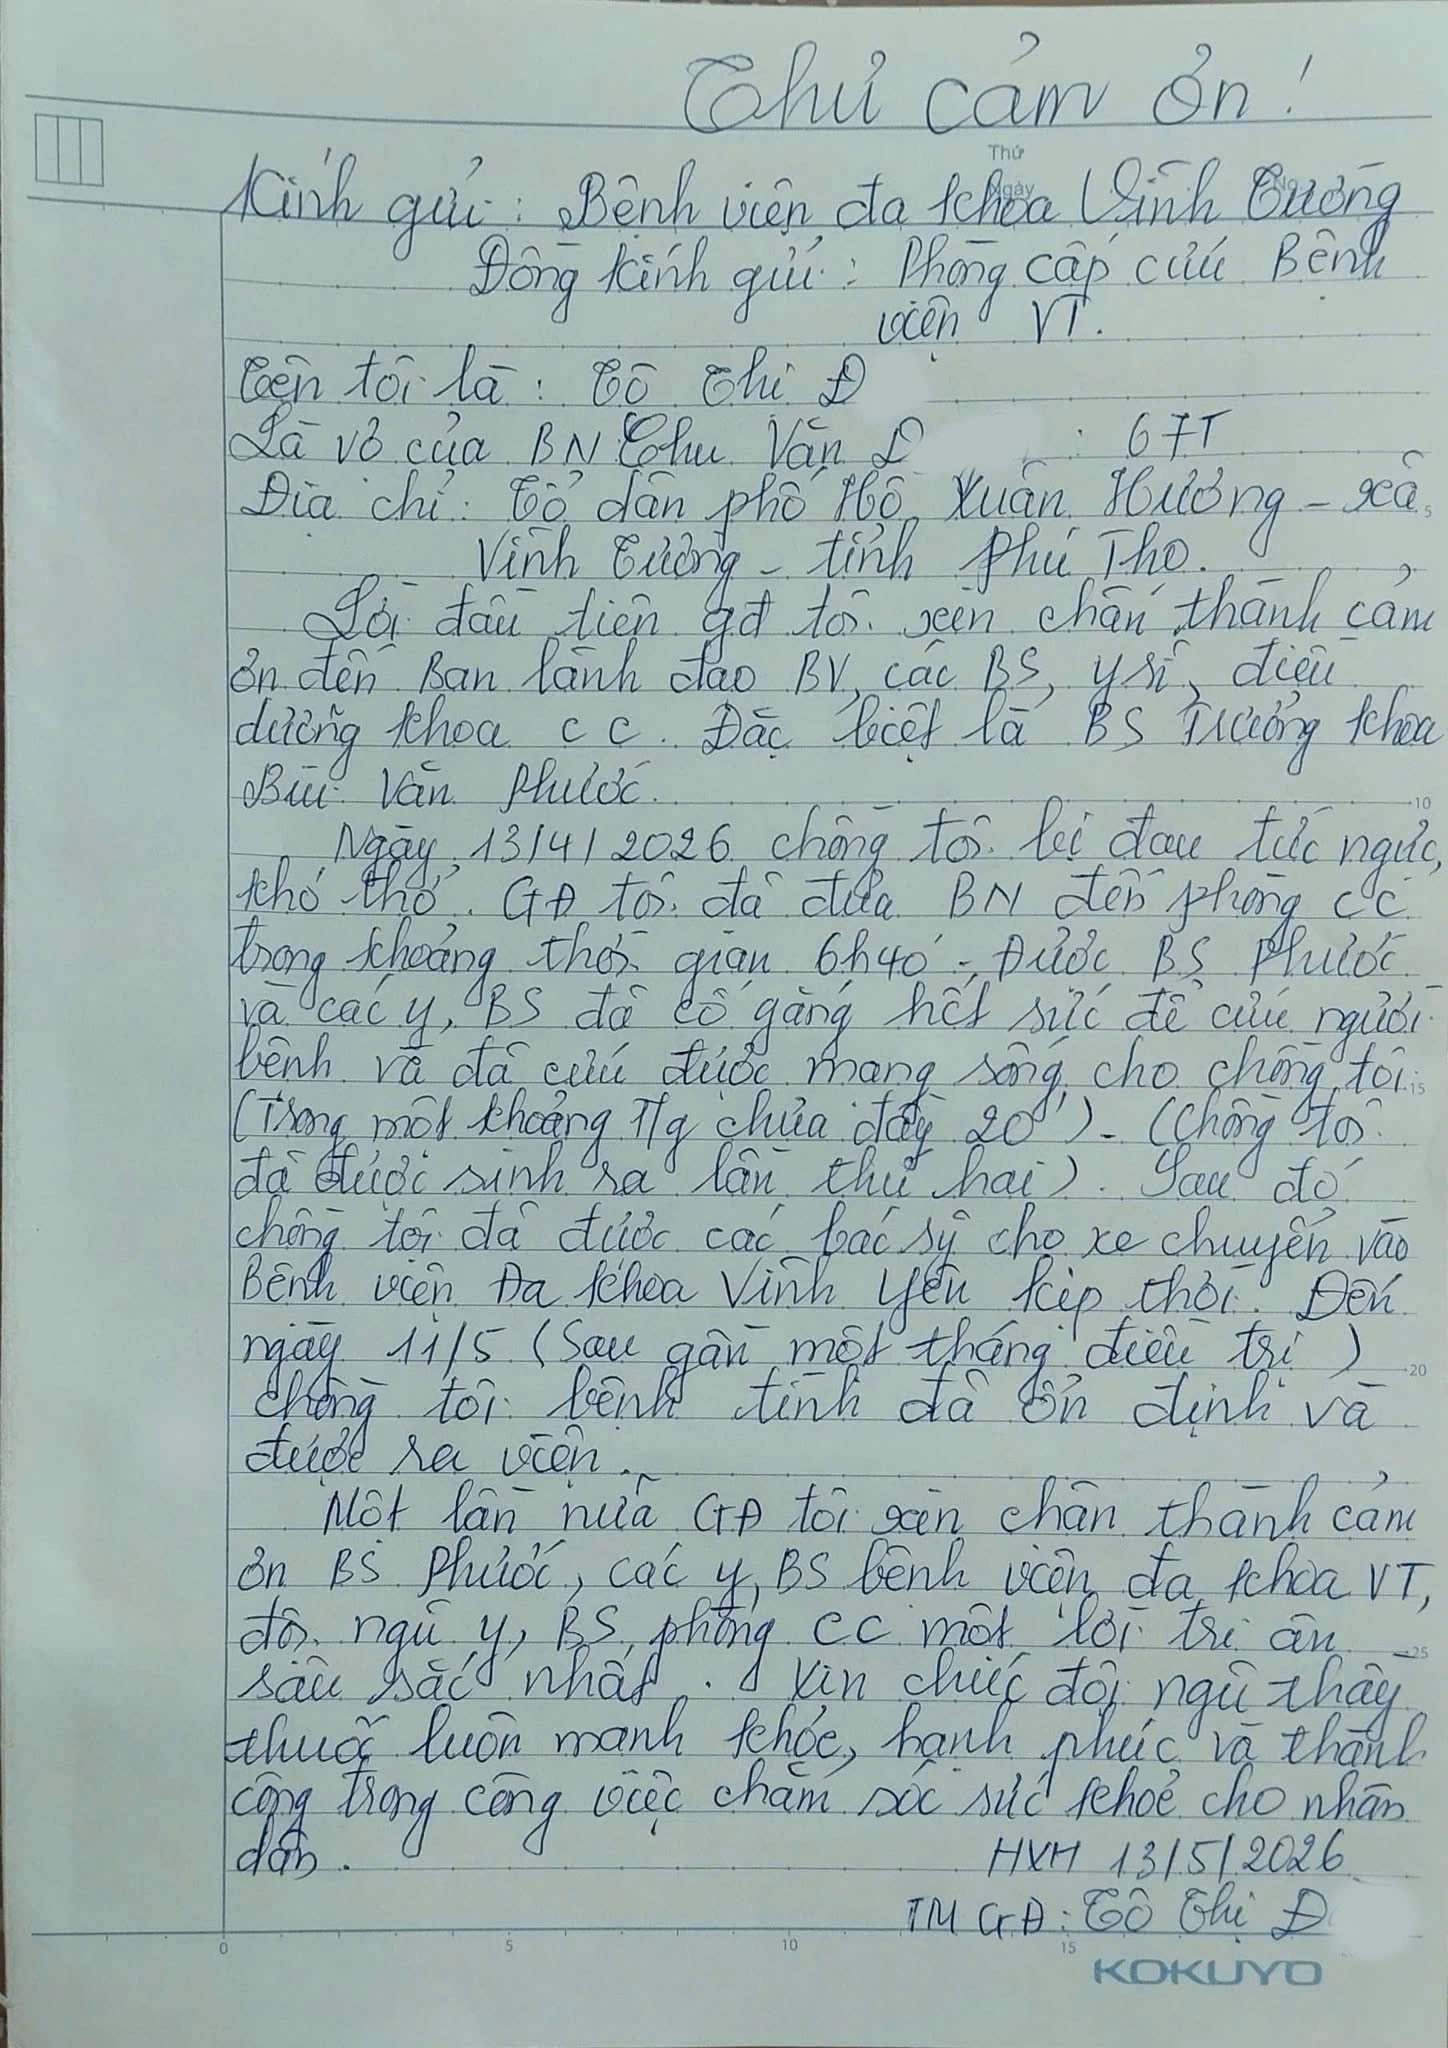 Thư cảm ơn!
Thứ
Ngày
Kính gửi: Bệnh viện đa khoa Vĩnh Tường
Đồng kính gửi: Phòng cấp cứu Bệnh
viện VT.
Tên tôi là: Tô Thị Đ
Là vợ của BN Chu Văn D : 67T
Địa chỉ: Tổ dân phố Hồ Xuân Hương - xã
5
Vĩnh Tường - tỉnh Phú Thọ.
Lời đầu tiên gđ tôi xin chân thành cảm
ơn đến Ban lãnh đạo BV, các BS, y sĩ, điều
dưỡng khoa CC. Đặc biệt là BS Trưởng khoa
Bùi Văn Phước.
10
Ngày 13/4/2026 chồng tôi bị đau tức ngực,
khó thở. GĐ tôi đã đưa BN đến phòng CC
trong khoảng thời gian 6h40' - Được BS Phước
và các y, BS đã cố gắng hết sức để cứu người
bệnh và đã cứu được mạng sống cho chồng tôi
15
(Trong một khoảng T/g chưa đầy 20') - (Chồng tôi
đã được sinh ra lần thứ hai). Sau đó
chồng tôi đã được các bác sỹ cho xe chuyển vào
Bệnh viện Đa khoa Vĩnh Yên kịp thời. Đến
ngày 11/5 (Sau gần một tháng điều trị)
20
chồng tôi bệnh tình đã ổn định và
được ra viện.
Một lần nữa GĐ tôi xin chân thành cảm
ơn BS Phước, các y, BS bệnh viện đa khoa VT,
đội ngũ y, BS, phòng CC một lời tri ân
25
sâu sắc nhất. Xin chúc đội ngũ thầy
thuốc luôn mạnh khỏe, hạnh phúc và thành
công trong công việc chăm sóc sức khoẻ cho nhân
dân. HXH 13/5/2026
TM GĐ: Tô Thị Đ
0 5 10 15
KOKUYO